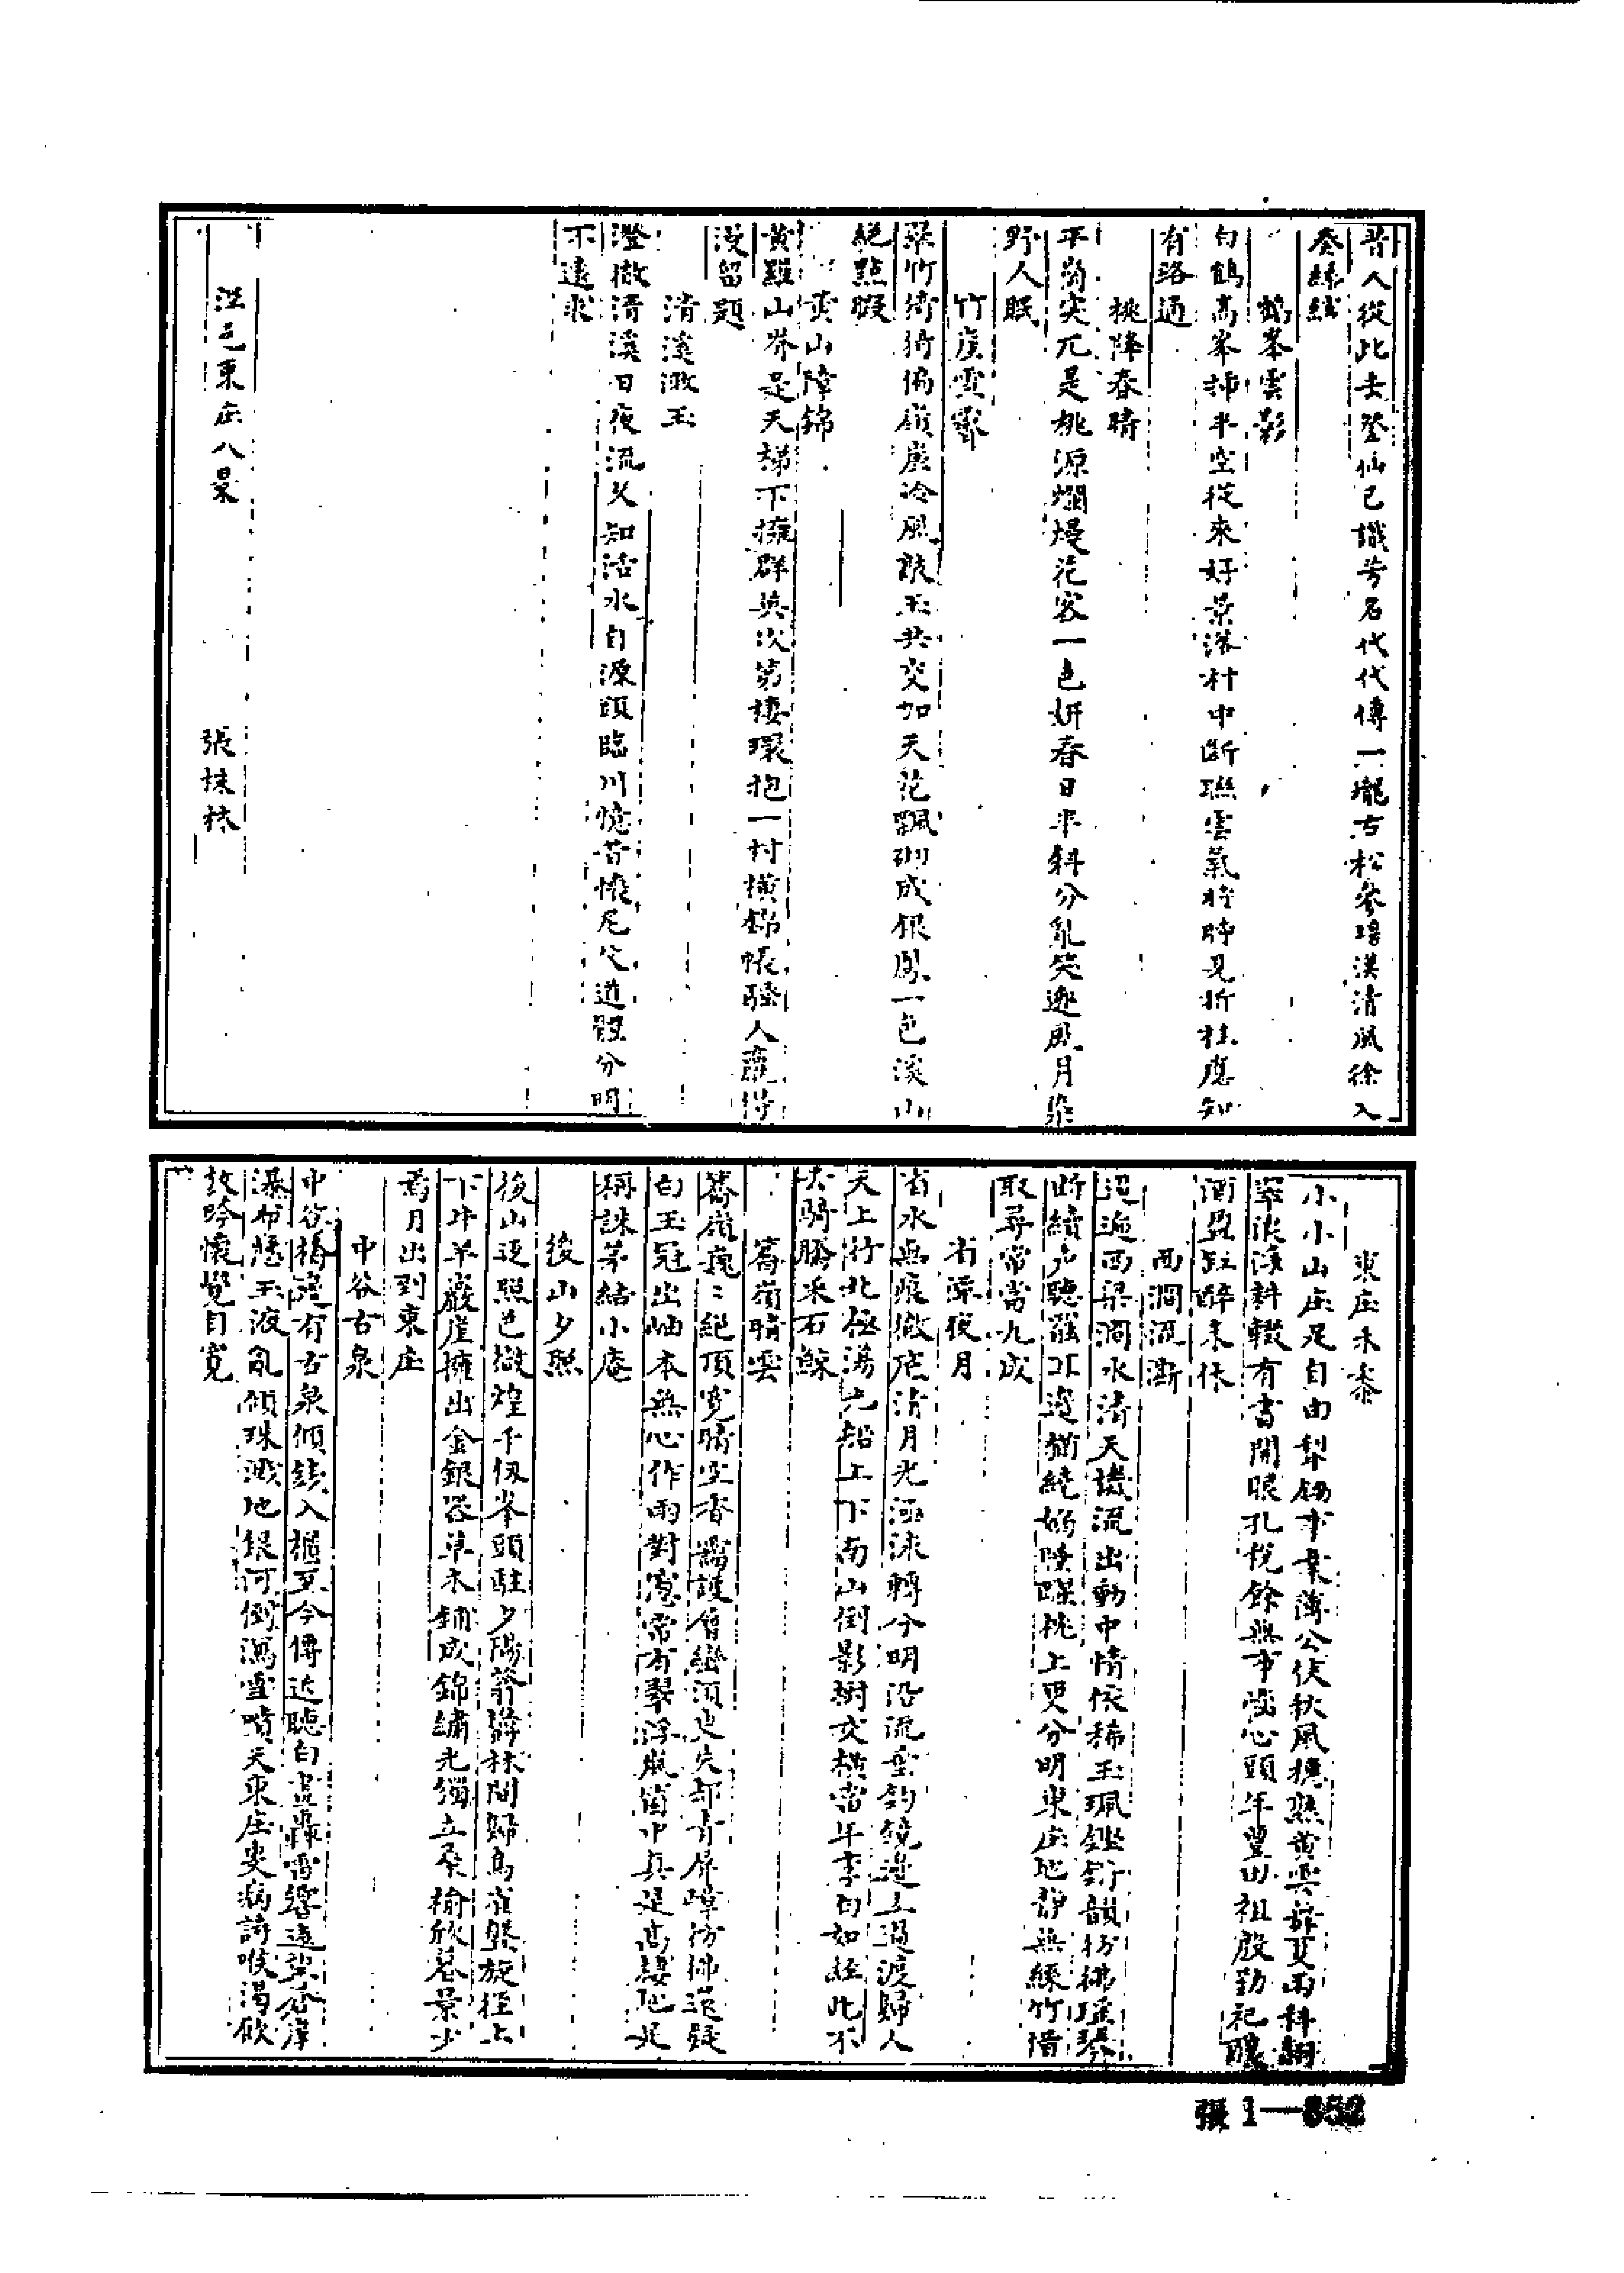 昔人從此去登仙已識芳名代代傳一壠古松參碧漢清風徐入
奏絲絃
鶴峯雲影
白鶴高峯揷半空從來好景落村中斷聯雲氣時時見折桂應知
有路通
桃降春晴
平崗突兀是桃源爛熳花容一色妍春日半斜分亂笑邀風月伴
野人眠
竹崖雪霽
翠竹猗猗偏嶺崖冷風敲玉共交加天花飄砌成銀鳳一色溪山
絕點瑕
黃山障錦
黃羅山岸是天梯下擁群英次第棲環抱一村橫錦帳騷人亂得
漫留題
清溪漱玉
澄徹清溪日夜流久知活水自源頭臨川憶昔懷尼父道體分明
不遠求
江邑東庄八景
張抹林
東庄禾黍
小小山庄足自由犁鋤事業薄公侯秋風穩熟黃雲 夏雨科翻
翠浪浮耕輟有書開眼孔稅餘無事惱心頭年豐田祖殷勤祀釀
酒盈缸醉未休
西澗流澌
迢迤西梁澗水清天機流出動中情依稀玉珮鏗鏘韻彷彿瑤琴
斷續聲聽 耳邊猶繞 睡醒枕上更分明東庄地靜無絲竹借
取尋常當九成
省潭夜月
省水無痕徹底清月光 轉分明沿流垂釣鏡邊上過渡歸人
天上行北極蕩光船上下南山倒影樹交橫當年李白如經此不
去騎鯨采石鯨
嵩嶺晴雲
嵩嶺巍〻絕頂寬晴空香靄護層巒須臾失却青屏嶂彷彿還疑
白玉冠出岫本無心作雨對窻常有翠浮嵐箇中真是高棲地是
稱誅茅結小庵
後山夕照
後山返照色煌煌千仞峯頭駐夕陽 林間歸鳥雀盤旋徑上
下牛羊巖崖擁出金銀器草木鋪成錦繡光獨立桑榆欣暮景少
焉月出到東庄
中谷古泉
中谷橋邊有古泉傾 入 至今傳近聽白晝轟雷響遠望 岸
瀑布懸玉液亂傾珠濺地銀河倒瀉雪噴天東庄叟病詩喉渴飲
放吟懷覺自寬
張1—852